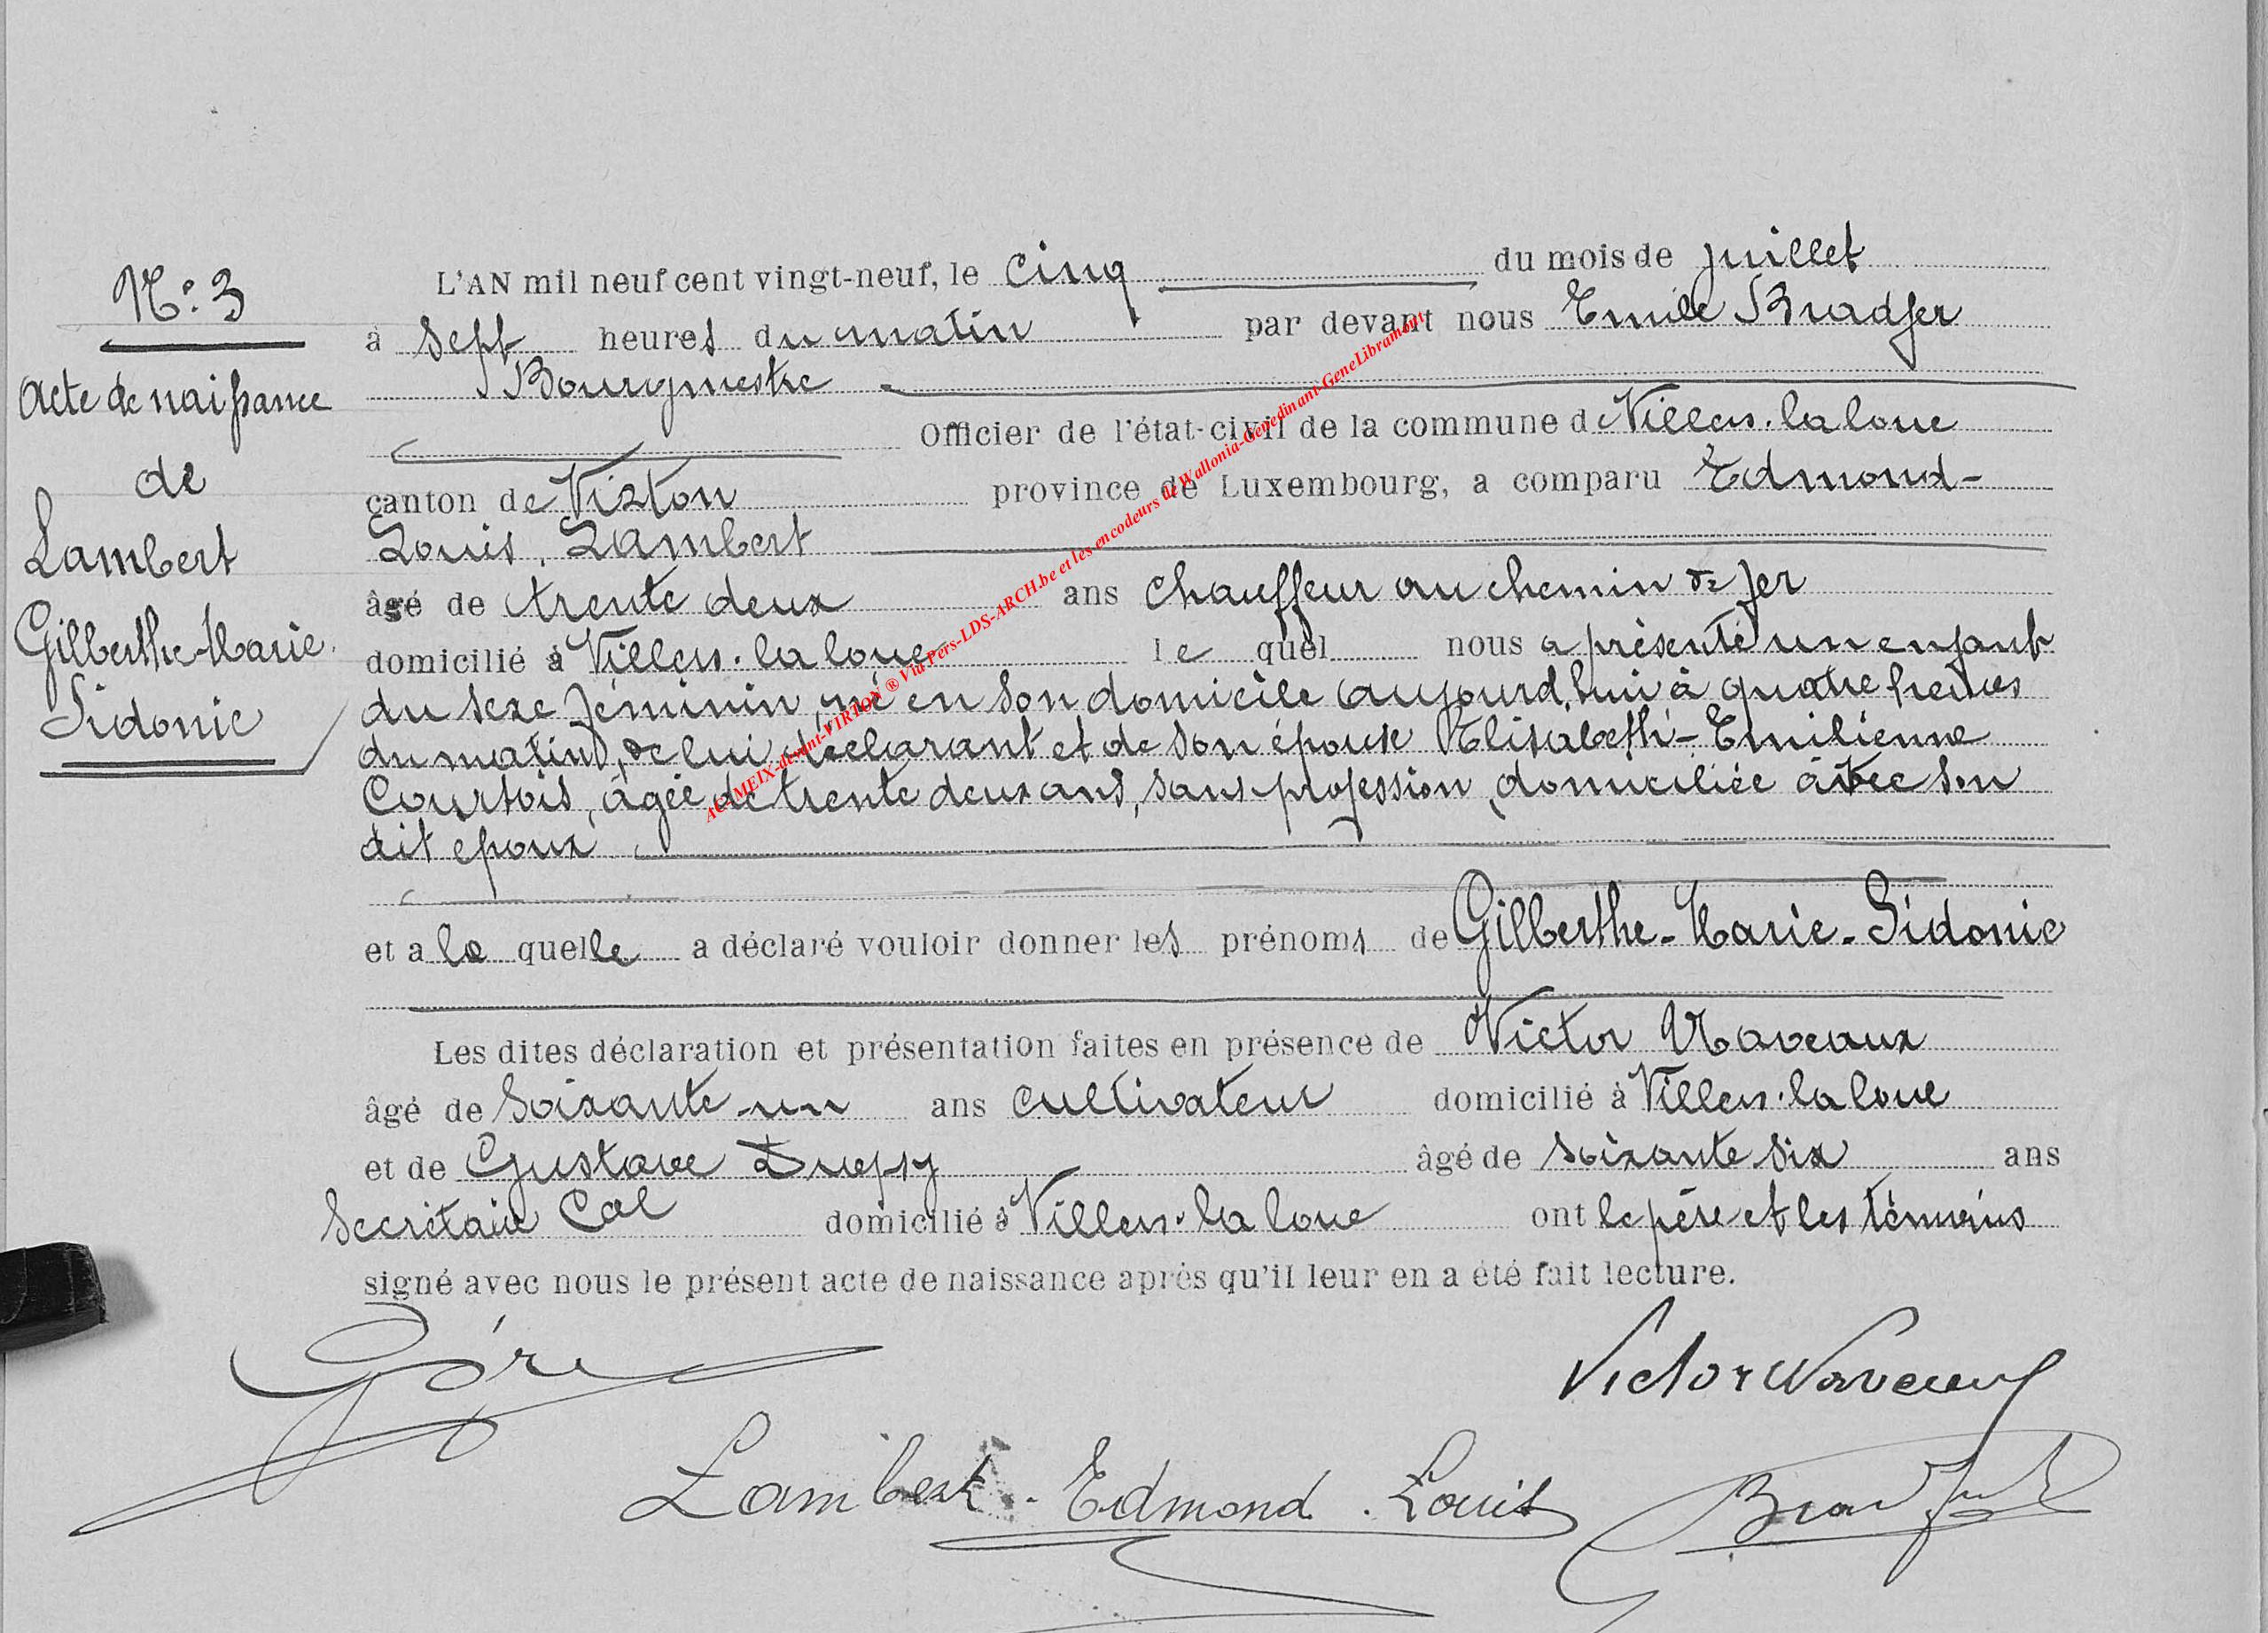 N° 3
Acte de naissance
de
Lambert
Gilberthe-Marie
Sidonie
L'AN mil neuf cent vingt-neuf, le cinq du mois de juillet
à sept heures du matin par devant nous Emile Bradfer
Bourgmestre
Officier de l'état-civil de la commune de Villers-la loue
canton de Virton province de Luxembourg, a comparu Edmond-
Louis, Lambert
âgé de trente deux ans chauffeur au chemin de fer
domicilié à Villers-la loue le quel nous a présenté un enfant
du sexe féminin, né en son domicile aujourd'hui à quatre heures
du matin, de lui déclarant et de son épouse Elisabeth-Emilienne
Courtois, âgée de trente deux ans, sans profession, domiciliée avec son
dit époux
et a la quelle a déclaré vouloir donner les prénoms de Gilberthe-Marie-Sidonie
Les dites déclaration et présentation faites en présence de Victor Naveaux
âgé de soixante-un ans cultivateur domicilié à Villers-la loue
et de Gustave âgé de soixante six ans
Secrétaire Cal domicilié à Villers-la loue ont le père et les témoins
signé avec nous le présent acte de naissance après qu'il leur en a été fait lecture.
Victor Naveaux
Lambert. Edmond. Louis
Bradfer
AC-MEIX-devant-VIRTON ® Via Pers-LDS-ARCH.be et les encodeurs de Wallonia-Genedinant-GeneLibramont